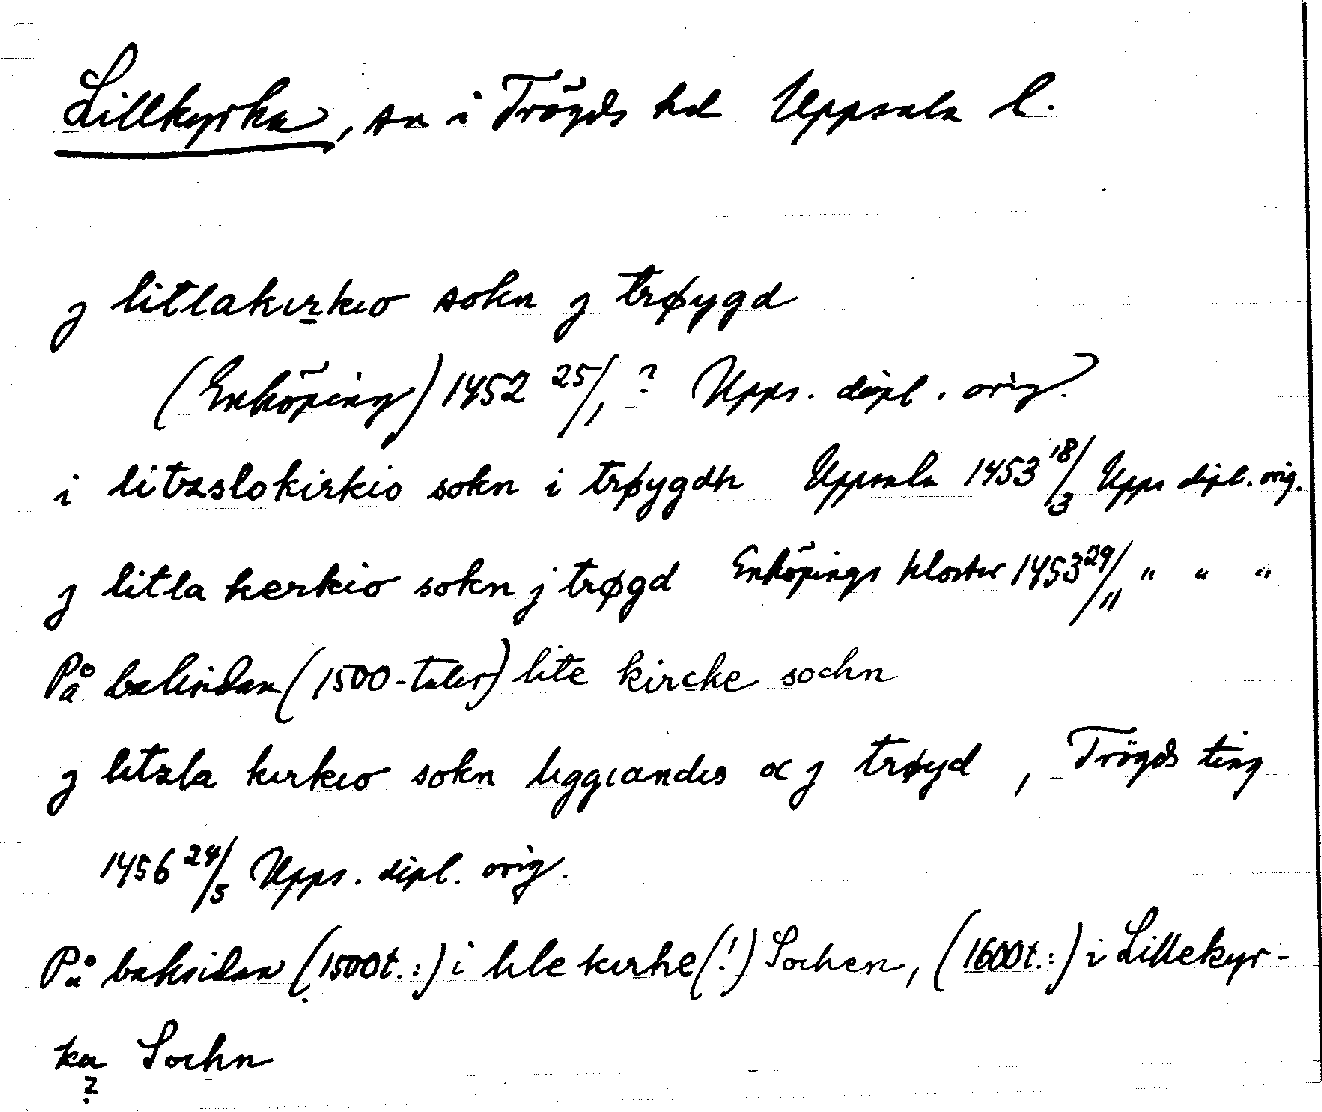 Lillkyrka, sn i Trögds hd Uppsala l.
j litlakirkio sokn j trøygd
(Enköping) 1452 25/1 ? Upps. dipl. orig.
i litzslokirkio sokn i trøygdh Uppsala 1453 18/3 Upps dipl. orig.
j litla kerkio sokn j trøgd Enköpings kloster 1453 29/11 " " "
På baksidan (1500-talet) lite kircke sochn
j litzla kirkio sokn liggiandis a j trøyd , Trögds ting
1456 24/5 Upps. dipl. orig.
På baksidan (1500t.:) i lile kirke (!) Sochen, (1600t.:) i Lillekyr-
ka Sochn
?